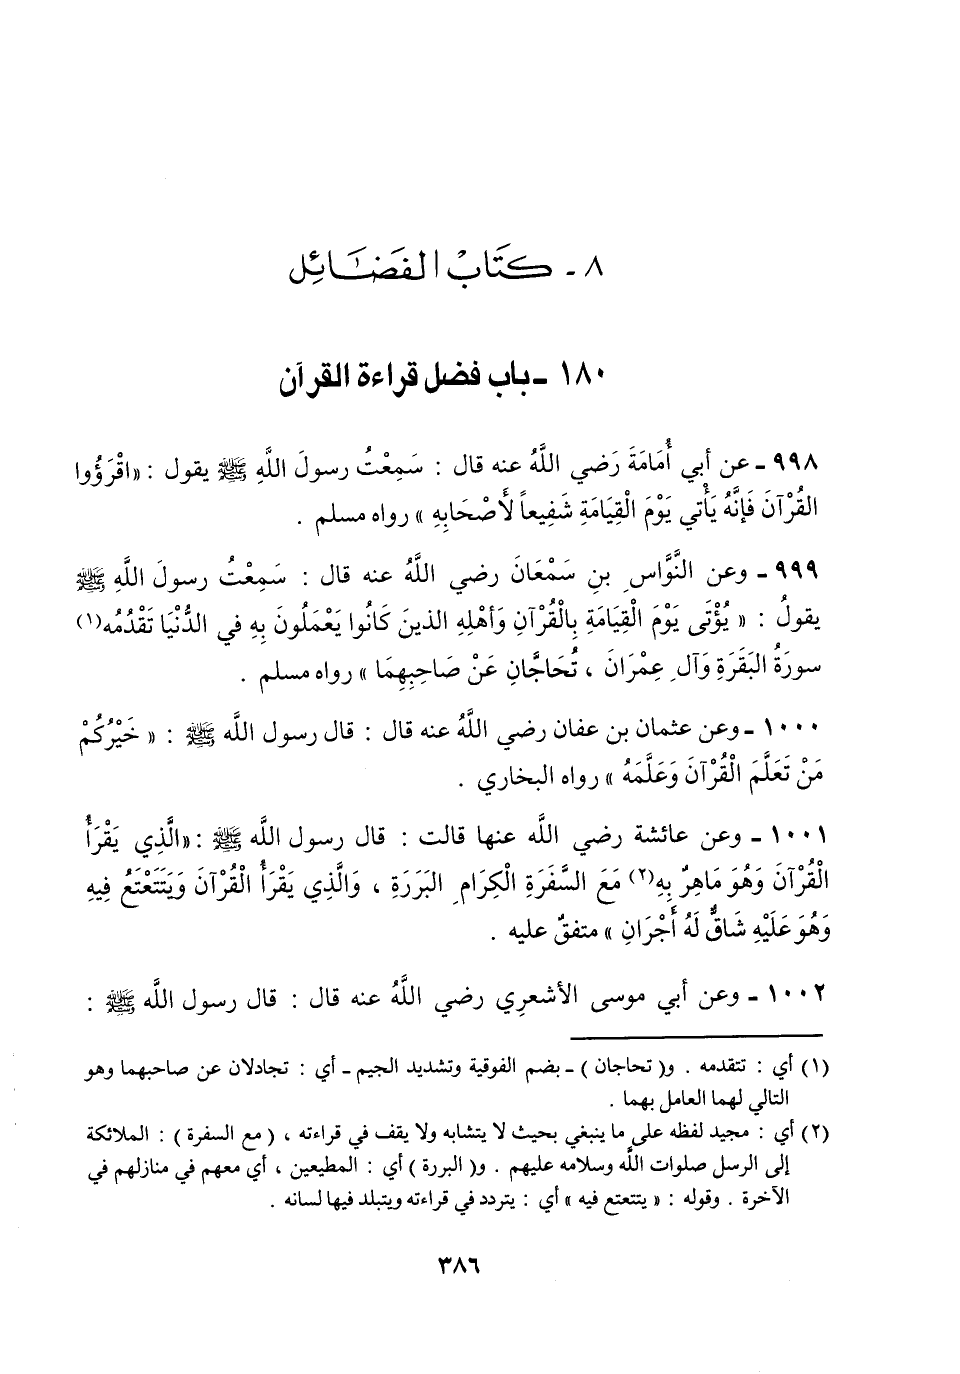 ٨ ـ كتَابُ الفَضَائِل
١٨٠ ـ باب فضل قراءة القرآن
٩٩٨ ـ عن أبي أُمَامَةَ رَضي اللَّهُ عنه قال : سَمِعْتُ رسولَ اللَّهِ ﷺ يقول : «اقْرَؤُوا
القُرْآنَ فَإِنَّهُ يَأْتي يَوْمَ الْقِيَامَةِ شَفِيعاً لأَصْحَابِهِ » رواه مسلم .
٩٩٩ ـ وعن النَّوَّاسِ بنِ سَمْعَانَ رضي اللَّهُ عنه قال : سَمِعْتُ رسولَ اللَّهِ ﷺ
يقولُ : « يُؤْتَى يَوْمَ الْقِيَامَةِ بِالْقُرْآنِ وَأَهْلِهِ الذينَ كَانُوا يَعْمَلُونَ بِهِ في الدُّنْيَا تَقْدُمُه(١)
سورَةُ البَقَرَةِ وَآلِ عِمْرَانَ ، تُحَاجَّانِ عَنْ صَاحِبِهِمَا » رواه مسلم .
١٠٠٠ ـ وعن عثمان بن عفان رضي اللَّهُ عنه قال : قال رسول اللَّه ﷺ : « خَيْرُكُمْ
مَنْ تَعَلَّمَ الْقُرْآنَ وَعَلَّمَهُ » رواه البخاري .
١٠٠١ ـ وعن عائشة رضي اللَّه عنها قالت : قال رسول اللَّه ﷺ : «الَّذِي يَقْرَأُ
الْقُرْآنَ وَهُوَ مَاهِرٌ بِهِ(٢) مَعَ السَّفَرَةِ الْكِرَامِ البَرَرَةِ ، وَالَّذِي يَقْرَأُ الْقُرْآنَ وَيَتَتَعْتَعُ فِيهِ
وَهُوَ عَلَيْهِ شَاقٌّ لَهُ أَجْرَانِ » متفقٌ عليه .
١٠٠٢ ـ وعن أبي موسى الأشعرِي رضي اللَّهُ عنه قال : قال رسول اللَّه ﷺ :
(١) أي : تتقدمه . و( تحاجان ) ـ بضم الفوقية وتشديد الجيم ـ أي : تجادلان عن صاحبهما وهو
التالي لهما العامل بهما .
(٢) أي : مجيد لفظه على ما ينبغي بحيث لا يتشابه ولا يقف في قراءته ، ( مع السفرة ) : الملائكة
إلى الرسل صلوات اللَّه وسلامه عليهم . و( البررة ) أي : المطيعين ، أي معهم في منازلهم في
الآخرة . وقوله : « يتتعتع فيه » أي : يتردد في قراءته ويتبلد فيها لسانه .
٣٨٦